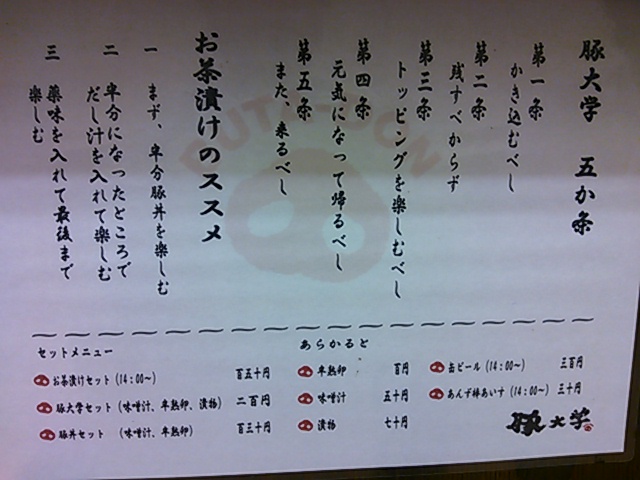 豚大学 五か条
第一条
かき込むべし
第二条
残すべからず
第三条
トッピングを楽しむべし
第四条
元気になって帰るべし
第五条
また、来るべし
お茶漬けのススメ
一 まず、半分豚丼を楽しむ
二 半分になったところで
だし汁を入れて楽しむ
三 薬味を入れて最後まで
楽しむ
BUTA-DON
セットメニュー
お茶漬けセット(14:00〜) 百五十円
豚大学セット(味噌汁、半熟卵、漬物) 二百円
豚丼セット (味噌汁、半熟卵) 百三十円
あらかると
半熟卵 百円
味噌汁 五十円
漬物 七十円
缶ビール(14:00〜) 三百円
あんず棒あいす(14:00〜) 三十円
豚大学